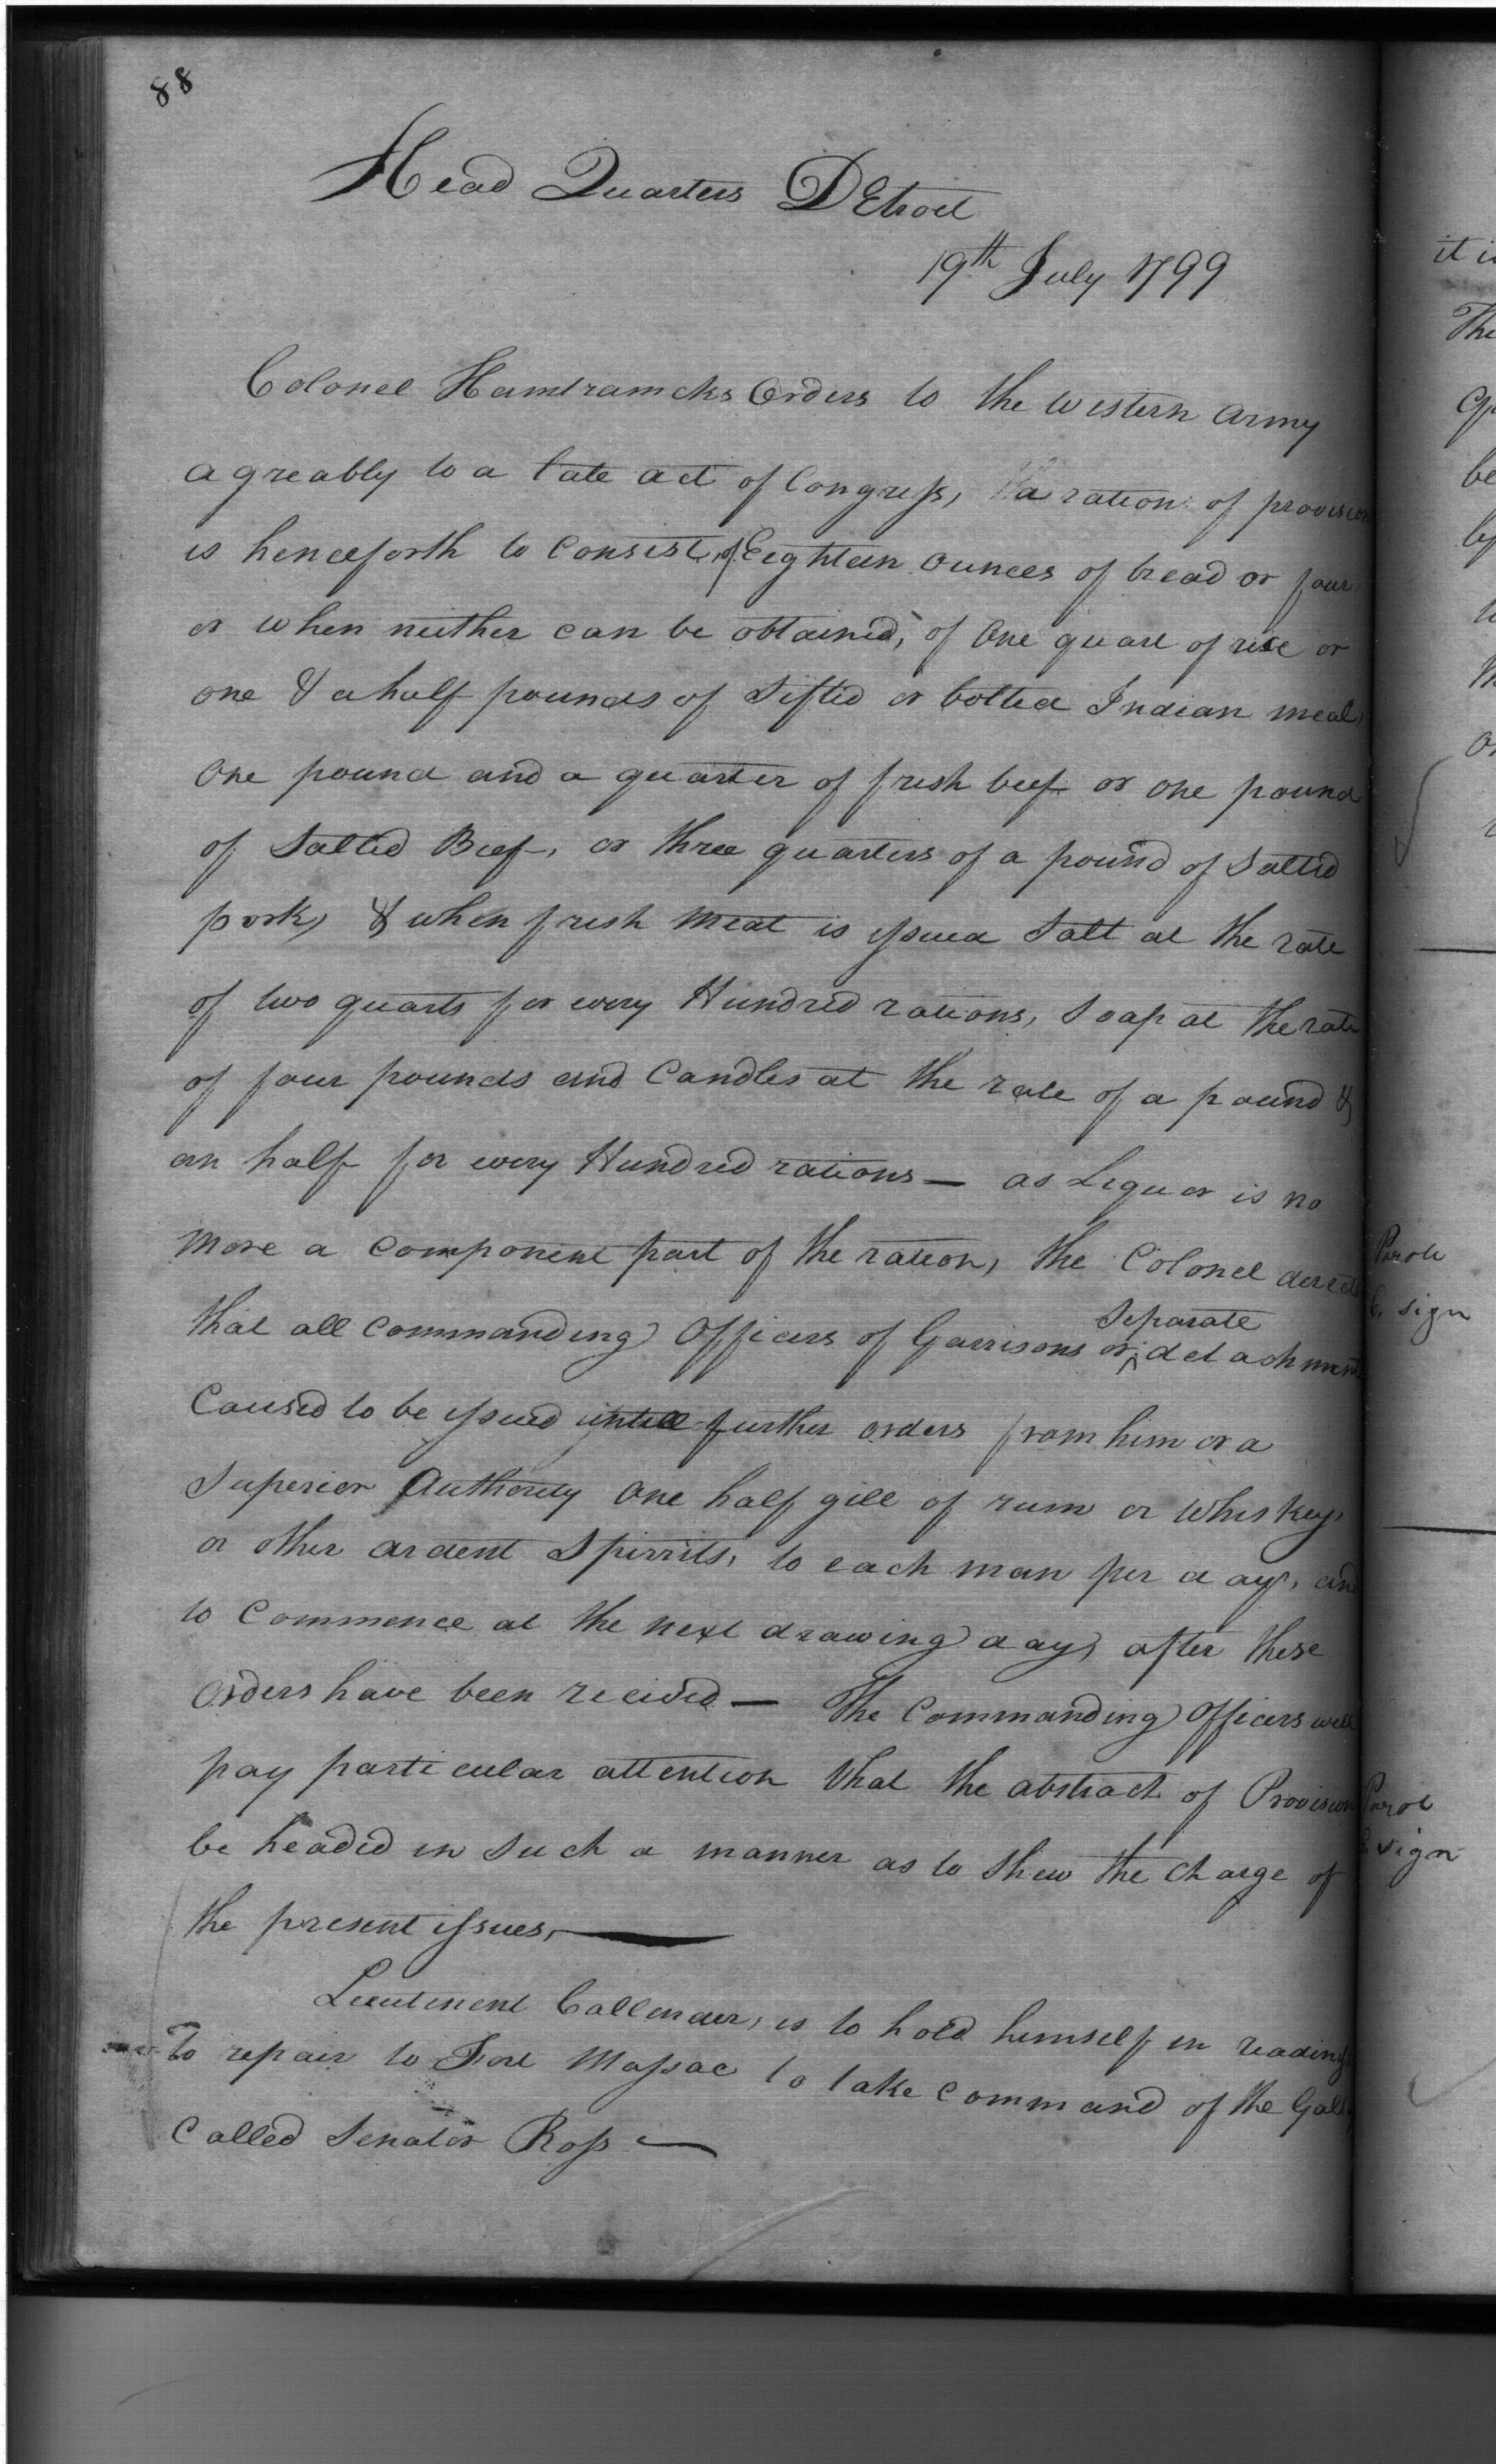 88
Head Quarters DEtroit
19th July 1799
Colonel Hamtramcks Orders to the Western army
agreably to a late act of Congress, a ration of provision
is henceforth to Consist, of Eighteen Ounces of bread or flour
or when neither can be obtained, of One quart of rice or
one & a half pounds of Sifted or bolted Indian meal,
One pound and a quarter of fresh beef or one pound
of Salted Beef, or three quarters of a pound of Salted
pork, & when fresh meat is issued Salt at the rate
of two quarts for every Hundred rations, Soap at the rate
of four pounds and Candles at the rate of a pound &
an half for every Hundred rations — as Liquor is no
more a component part of the ration, the Colonel directs
Separate
that all commanding Officers of Garrisons or detachments
Caused to be issued untill further orders from him or a
Superior Authority One half gill of rum or Whiskey,
or other ardent Spirrits, to each man per day, and
to Commence at the next drawing day, after these
Orders have been recived — The Commanding Officers will
pay particular attention that the abstract of Provision
be headed in Such a manner as to Shew the Charge of
the present issues, —
Lieutenent Callender, is to hold himself in readiness
To repair to Fort Massac to take command of the Galley
Called Senator Ross —
it
The
be
Parole
C. sign
Parol
C. sign